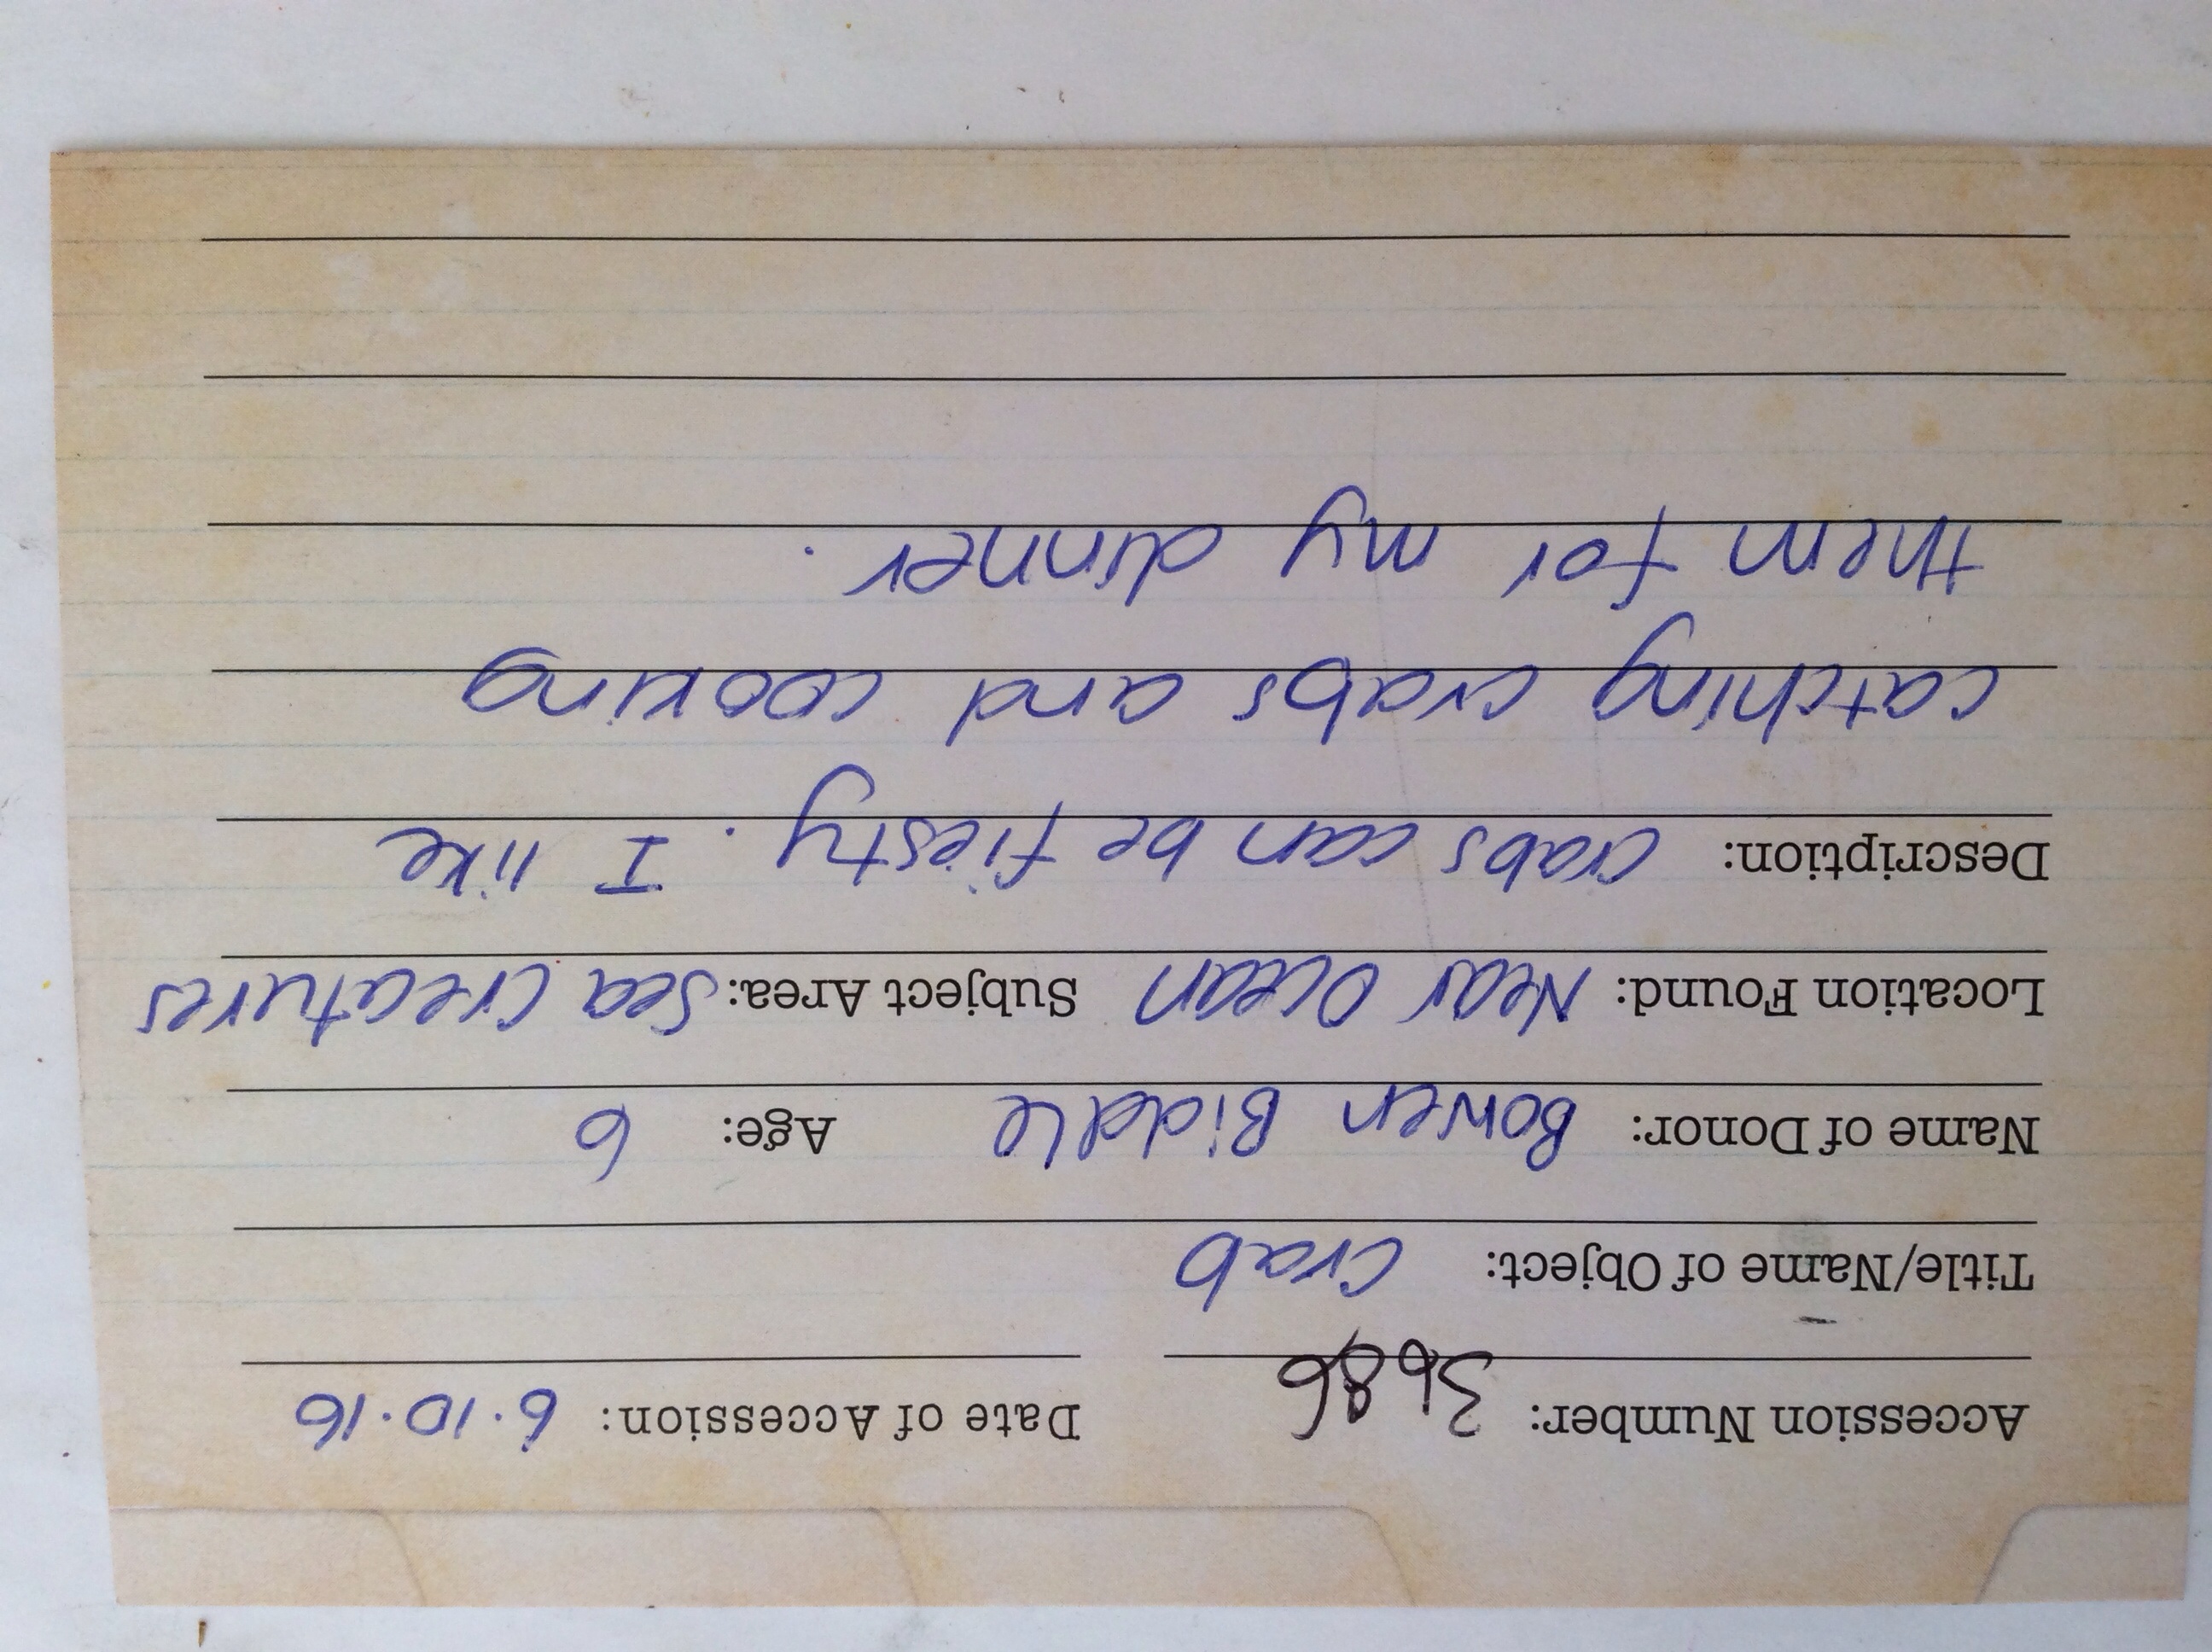 Accession Number: 3686 Date of Accession: 6.10.16
Title/Name of Object: Crab
Name of Donor: Bowen Biddle Age: 6
Location Found: Near Ocean Subject Area: Sea Creatures
Description: Crabs can be fiesty. I like
catching crabs and cooking
them for my dinner.